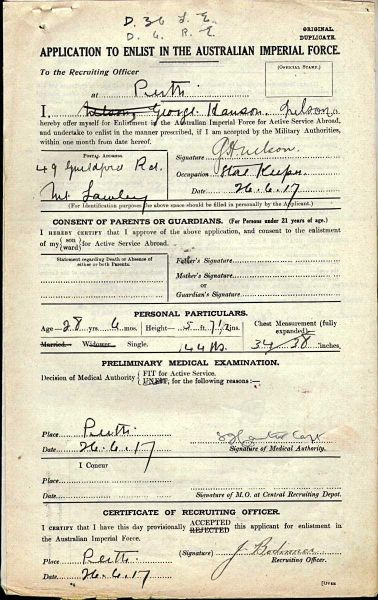 D. 36 I. E.
D. G. R. E.
ORIGINAL
DUPLICATE.
APPLICATION TO ENLIST IN THE AUSTRALIAN IMPERIAL FORCE.
To the Recruiting Officer
(OFFICIAL STAMP.)
at Perth
I, Nelson George Hanson Nelson
hereby offer myself for Enlistment in the Australian Imperial Force for Active Service Abroad,
and undertake to enlist in the manner prescribed, if I am accepted by the Military Authorities,
within one month from date hereof.
POSTAL ADDRESS.
49 Guildford Rd.
Mt Lawley
Signature G H Nelson
Occupation Store Keeper
Date 26.6.17
(For Identification purposes the above space should be filled in personally by the Applicant.)
CONSENT OF PARENTS OR GUARDIANS. (For Persons under 21 years of age.)
I HEREBY CERTIFY that I approve of the above application, and consent to the enlistment
of my {son (ward} for Active Service Abroad.
Statement regarding Death or Absence of either or both Parents.
Father's Signature
Mother's Signature
or
Guardian's Signature
PERSONAL PARTICULARS.
Age 28 yrs. 6 mos. Height— 5 ft. 7½ ins. Chest Measurement (fully expanded)—
Married. Widower. Single. 144 lbs. 34 38 inches.
PRELIMINARY MEDICAL EXAMINATION.
Decision of Medical Authority {FIT for Active Service.
UNFIT, for the following reasons:—
Place Perth
Date 26.6.17
Capt
Signature of Medical Authority.
I Concur
Place
Date
Signature of M.O. at Central Recruiting Depot.
CERTIFICATE OF RECRUITING OFFICER.
I CERTIFY that I have this day provisionally ACCEPTED REJECTED this applicant for enlistment in the
Australian Imperial Force.
Place Perth
Date 26.6.17
(Signature) J.
Recruiting Officer.
[OVER